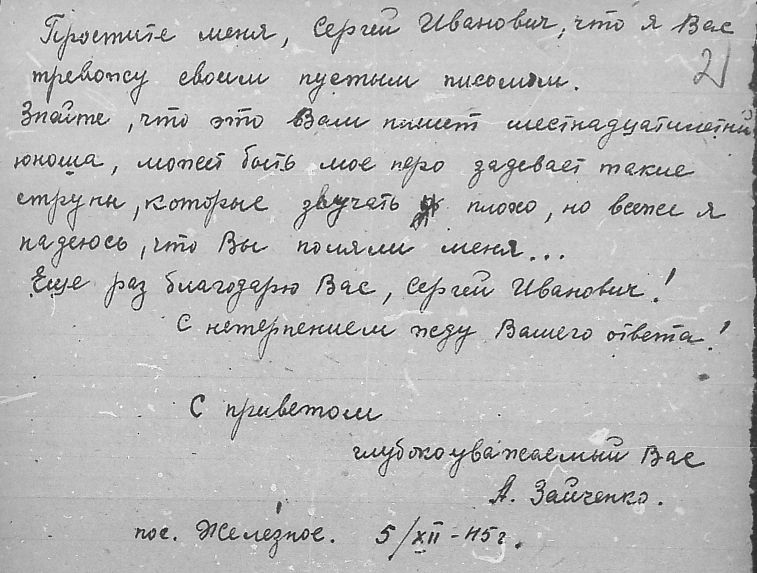 Простите меня, Сергей Иванович, что я Вас
2
тревожу своим пустым писомым.
Знайте, что это Вам пишет шестнадцатилетний
юноша, может быть мое перо задевает такие
струны, которые звучать плохо, но всеже я
надеюсь, что Вы поняли меня...
Еще раз благодарю Вас, Сергей Иванович!
С нетерпением жду Вашего ответа!
С приветом
глубокоуважаемый Вас
А. Зайченко.
пос. Желе́зное. 5/XII-45г.